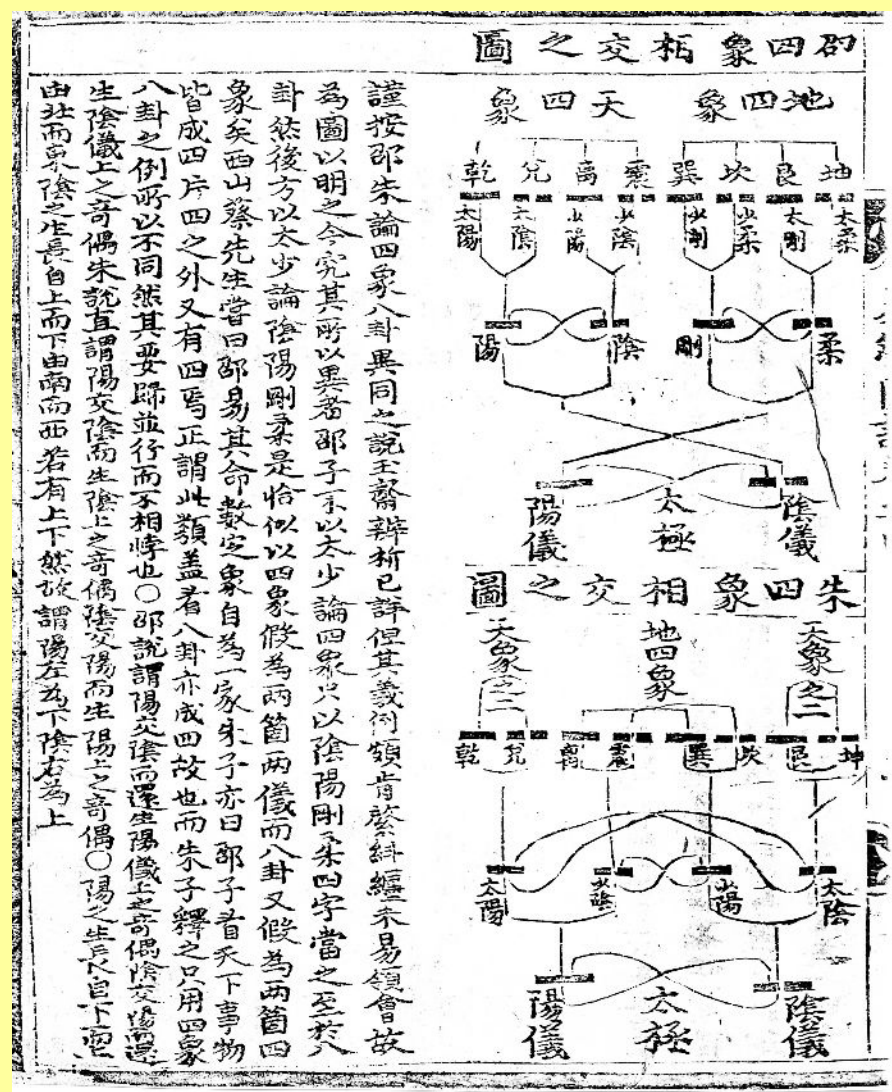 邵四象相交之圖
地四象 天四象
坤 艮 坎 巽 震 离 兌 乾
太柔 太剛 少柔 少剛 少陰 少陽 太陰 太陽
柔 剛 陰 陽
陰儀 太極 陽儀
朱四象相交之圖
天象之二 地四象 天象之二
坤 艮 坎 巽 震 离 兌 乾
太陰 少陽 少陰 太陽
陰儀 太極 陽儀
謹按邵朱論四象八卦異同之說玉齋辨析已詳但其義例頗肯綮紏纏未易領會故
為圖以明之今究其所以異者邵子不以太少論四象只以陰陽剛柔四字當之至於八
卦然後方以太少論陰陽剛柔是恰似以四象假為兩箇兩儀而八卦又假為兩箇四
象矣西山蔡先生嘗曰邵易其命數定象自為一家朱子亦曰邵子看天下事物
皆成四片四之外又有四焉正謂此類盖看八卦亦成四故也而朱子釋之只用四象
八卦之例所以不同然其要歸並行而不相悖也○邵說謂陽交陰而還生陽儀上之奇偶陰交陽而還
生陰儀上之奇偶朱說直謂陽交陰而生陰上之奇偶陰交陽而生陽上之奇偶○陽之生長自下而上
由北而東陰之生長自上而下由南而西若有上下然故謂陽左為下陰右為上